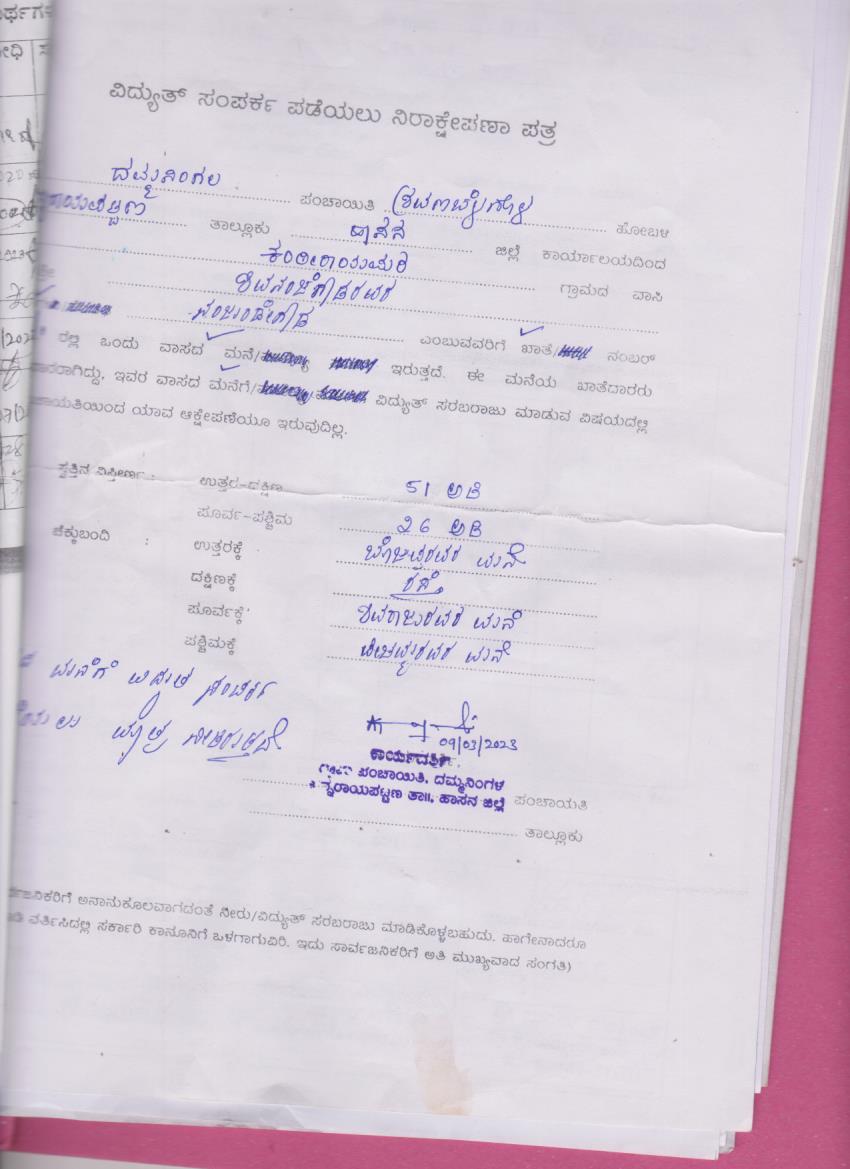 ರ್ಥಗಳ
ವಿದ್ಯುತ್ ಸಂಪರ್ಕ ಪಡೆಯಲು ನಿರಾಕ್ಷೇಪಣಾ ಪತ್ರ
ದಮ್ಮನಿಂಗಲ ಪಂಚಾಯಿತಿ ಶ್ರವಣಬೆಳಗೊಳ ಹೋಬಳಿ
ರಾಯಪಟ್ಟಣ ತಾಲ್ಲೂಕು ಹಾಸನ ಜಿಲ್ಲೆ ಕಾರ್ಯಾಲಯದಿಂದ
ಕಂಠೀರಾಯಪುರ ಗ್ರಾಮದ ವಾಸಿ
ಶಿವನಂಜೇಗೌಡರವರ
ನಂಜುಂಡೇಗೌಡ ಎಂಬುವವರಿಗೆ ಖಾತೆ/ ನಂಬರ್
ರಲ್ಲಿ ಒಂದು ವಾಸದ ಮನೆ/ ಇರುತ್ತದೆ. ಈ ಮನೆಯ ಖಾತೆದಾರರು
ದಾರರಾಗಿದ್ದು, ಇವರ ವಾಸದ ಮನೆಗೆ/ ವಿದ್ಯುತ್ ಸರಬರಾಜು ಮಾಡುವ ವಿಷಯದಲ್ಲಿ
ಚಾಯತಿಯಿಂದ ಯಾವ ಆಕ್ಷೇಪಣೆಯೂ ಇರುವುದಿಲ್ಲ.
ಸ್ವತ್ತಿನ ವಿಸ್ತೀರ್ಣ : ಉತ್ತರ-ದಕ್ಷಿಣ 51 ಅಡಿ
ಪೂರ್ವ-ಪಶ್ಚಿಮ 26 ಅಡಿ
ಚೆಕ್ಕುಬಂದಿ : ಉತ್ತರಕ್ಕೆ ಮನೆ
ದಕ್ಷಿಣಕ್ಕೆ ರಸ್ತೆ
ಪೂರ್ವಕ್ಕೆ ಶಿವರಾಜುರವರ ಮನೆ
ಪಶ್ಚಿಮಕ್ಕೆ ಮನೆ
ಮನೆಗೆ ವಿದ್ಯುತ್ ಸಂಪರ್ಕ
ಮಾತ್ರ
09/03/2023
ಕಾರ್ಯದರ್ಶಿ,
ಗ್ರಾಮ ಪಂಚಾಯಿತಿ, ದಮ್ಮನಿಂಗಳ
ನ್ನರಾಯಪಟ್ಟಣ ತಾ||, ಹಾಸನ ಜಿಲ್ಲೆ ಪಂಚಾಯತಿ
ತಾಲ್ಲೂಕು
ರ್ವಜನಿಕರಿಗೆ ಅನಾನುಕೂಲವಾಗದಂತೆ ನೀರು/ವಿದ್ಯುತ್ ಸರಬರಾಜು ಮಾಡಿಕೊಳ್ಳಬಹುದು. ಹಾಗೇನಾದರೂ
ವರ್ತಿಸಿದಲ್ಲಿ ಸರ್ಕಾರಿ ಕಾನೂನಿಗೆ ಒಳಗಾಗುವಿರಿ. ಇದು ಸಾರ್ವಜನಿಕರಿಗೆ ಅತಿ ಮುಖ್ಯವಾದ ಸಂಗತಿ)